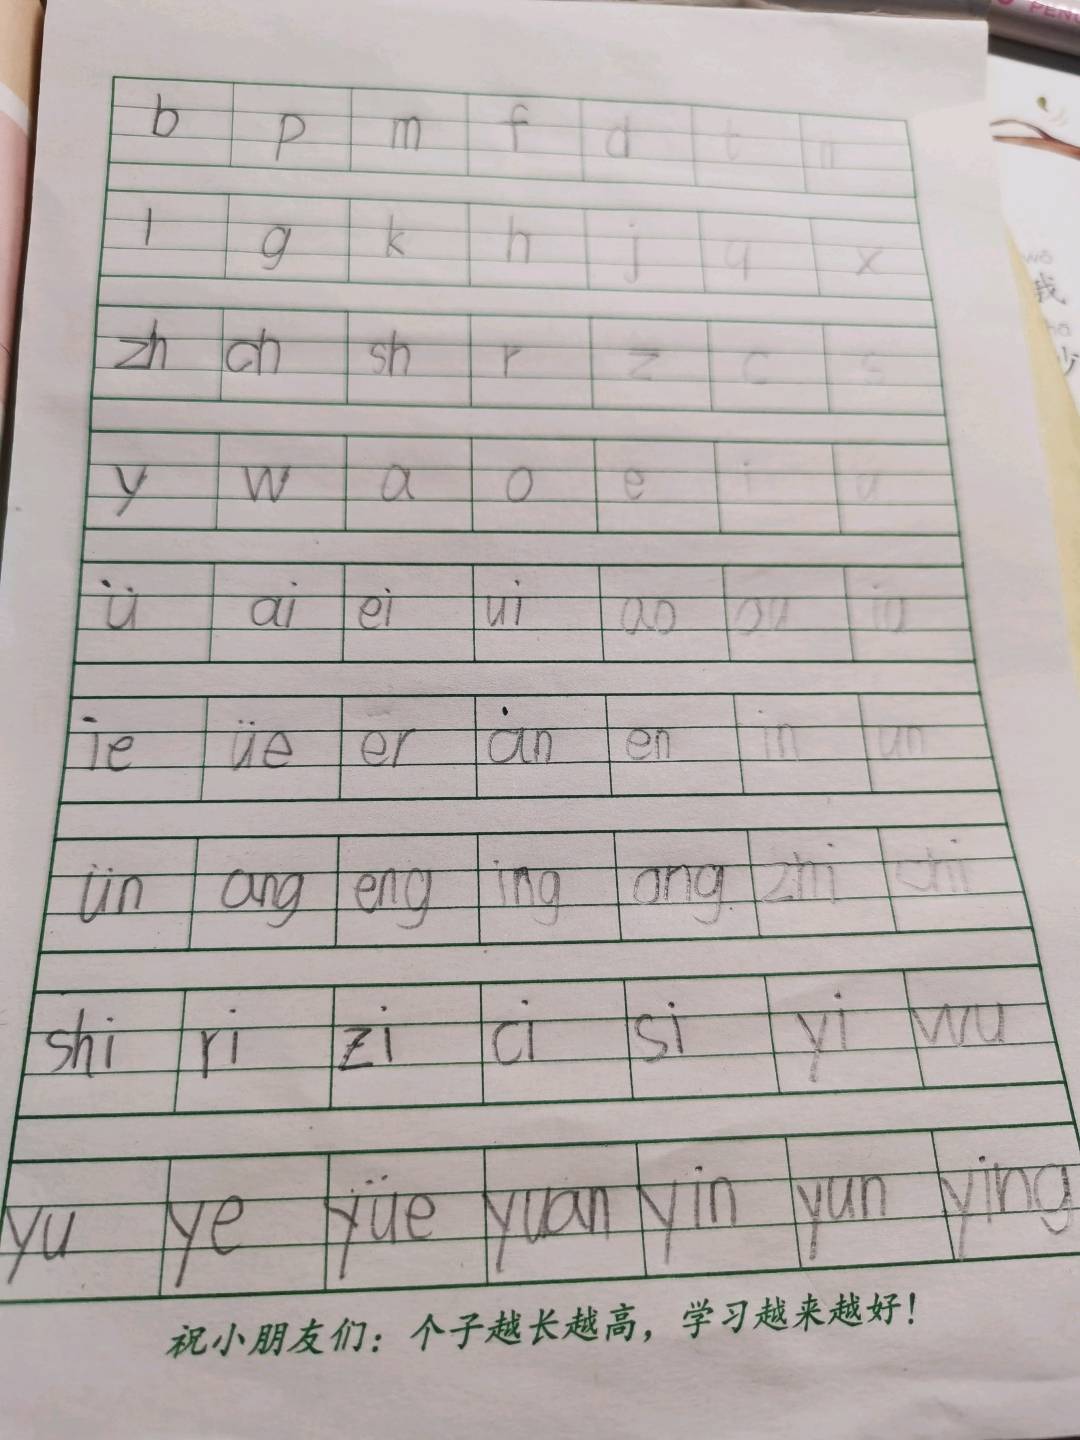 PEN
b p m f d t n
l g k h j q x
zh ch sh r z c s
y w a o e i u
ü ai ei ui ao ou iu
ie üe er an en in un
ün ang eng ing ong zhi chi
shi ri zi ci si yi wu
yu ye yüe yuan yin yun ying
祝小朋友们：个子越长越高，学习越来越好！
wǒ
我
少